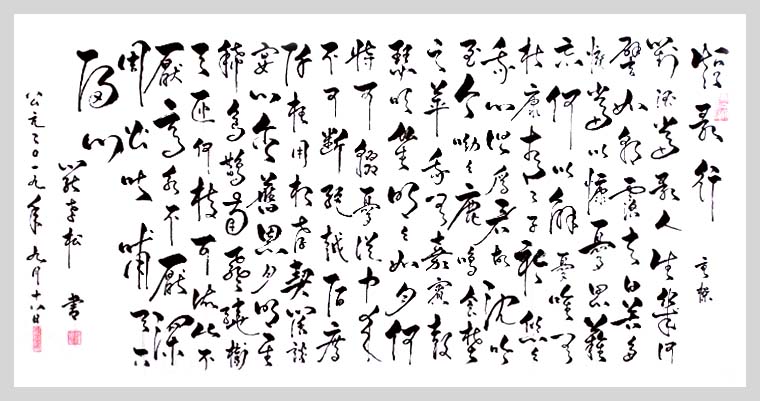 短歌行
曹操
對酒當歌人生幾何
譬如朝露去日苦多
慨當以慷憂思難
忘何以解憂唯有
杜康青青子衿悠悠
我心但為君故沉吟
至今呦呦鹿鳴食野
之苹我有嘉賓鼓
瑟吹笙明明如月何
時可掇憂從中來
不可斷絕越陌度
阡枉用相存契闊談
宴心念舊恩月明星
稀烏鵲南飛繞樹
三匝何枝可依山不
厭高水不厭深
周公吐哺天下
歸心
松書
公元二〇一九年九月十六日